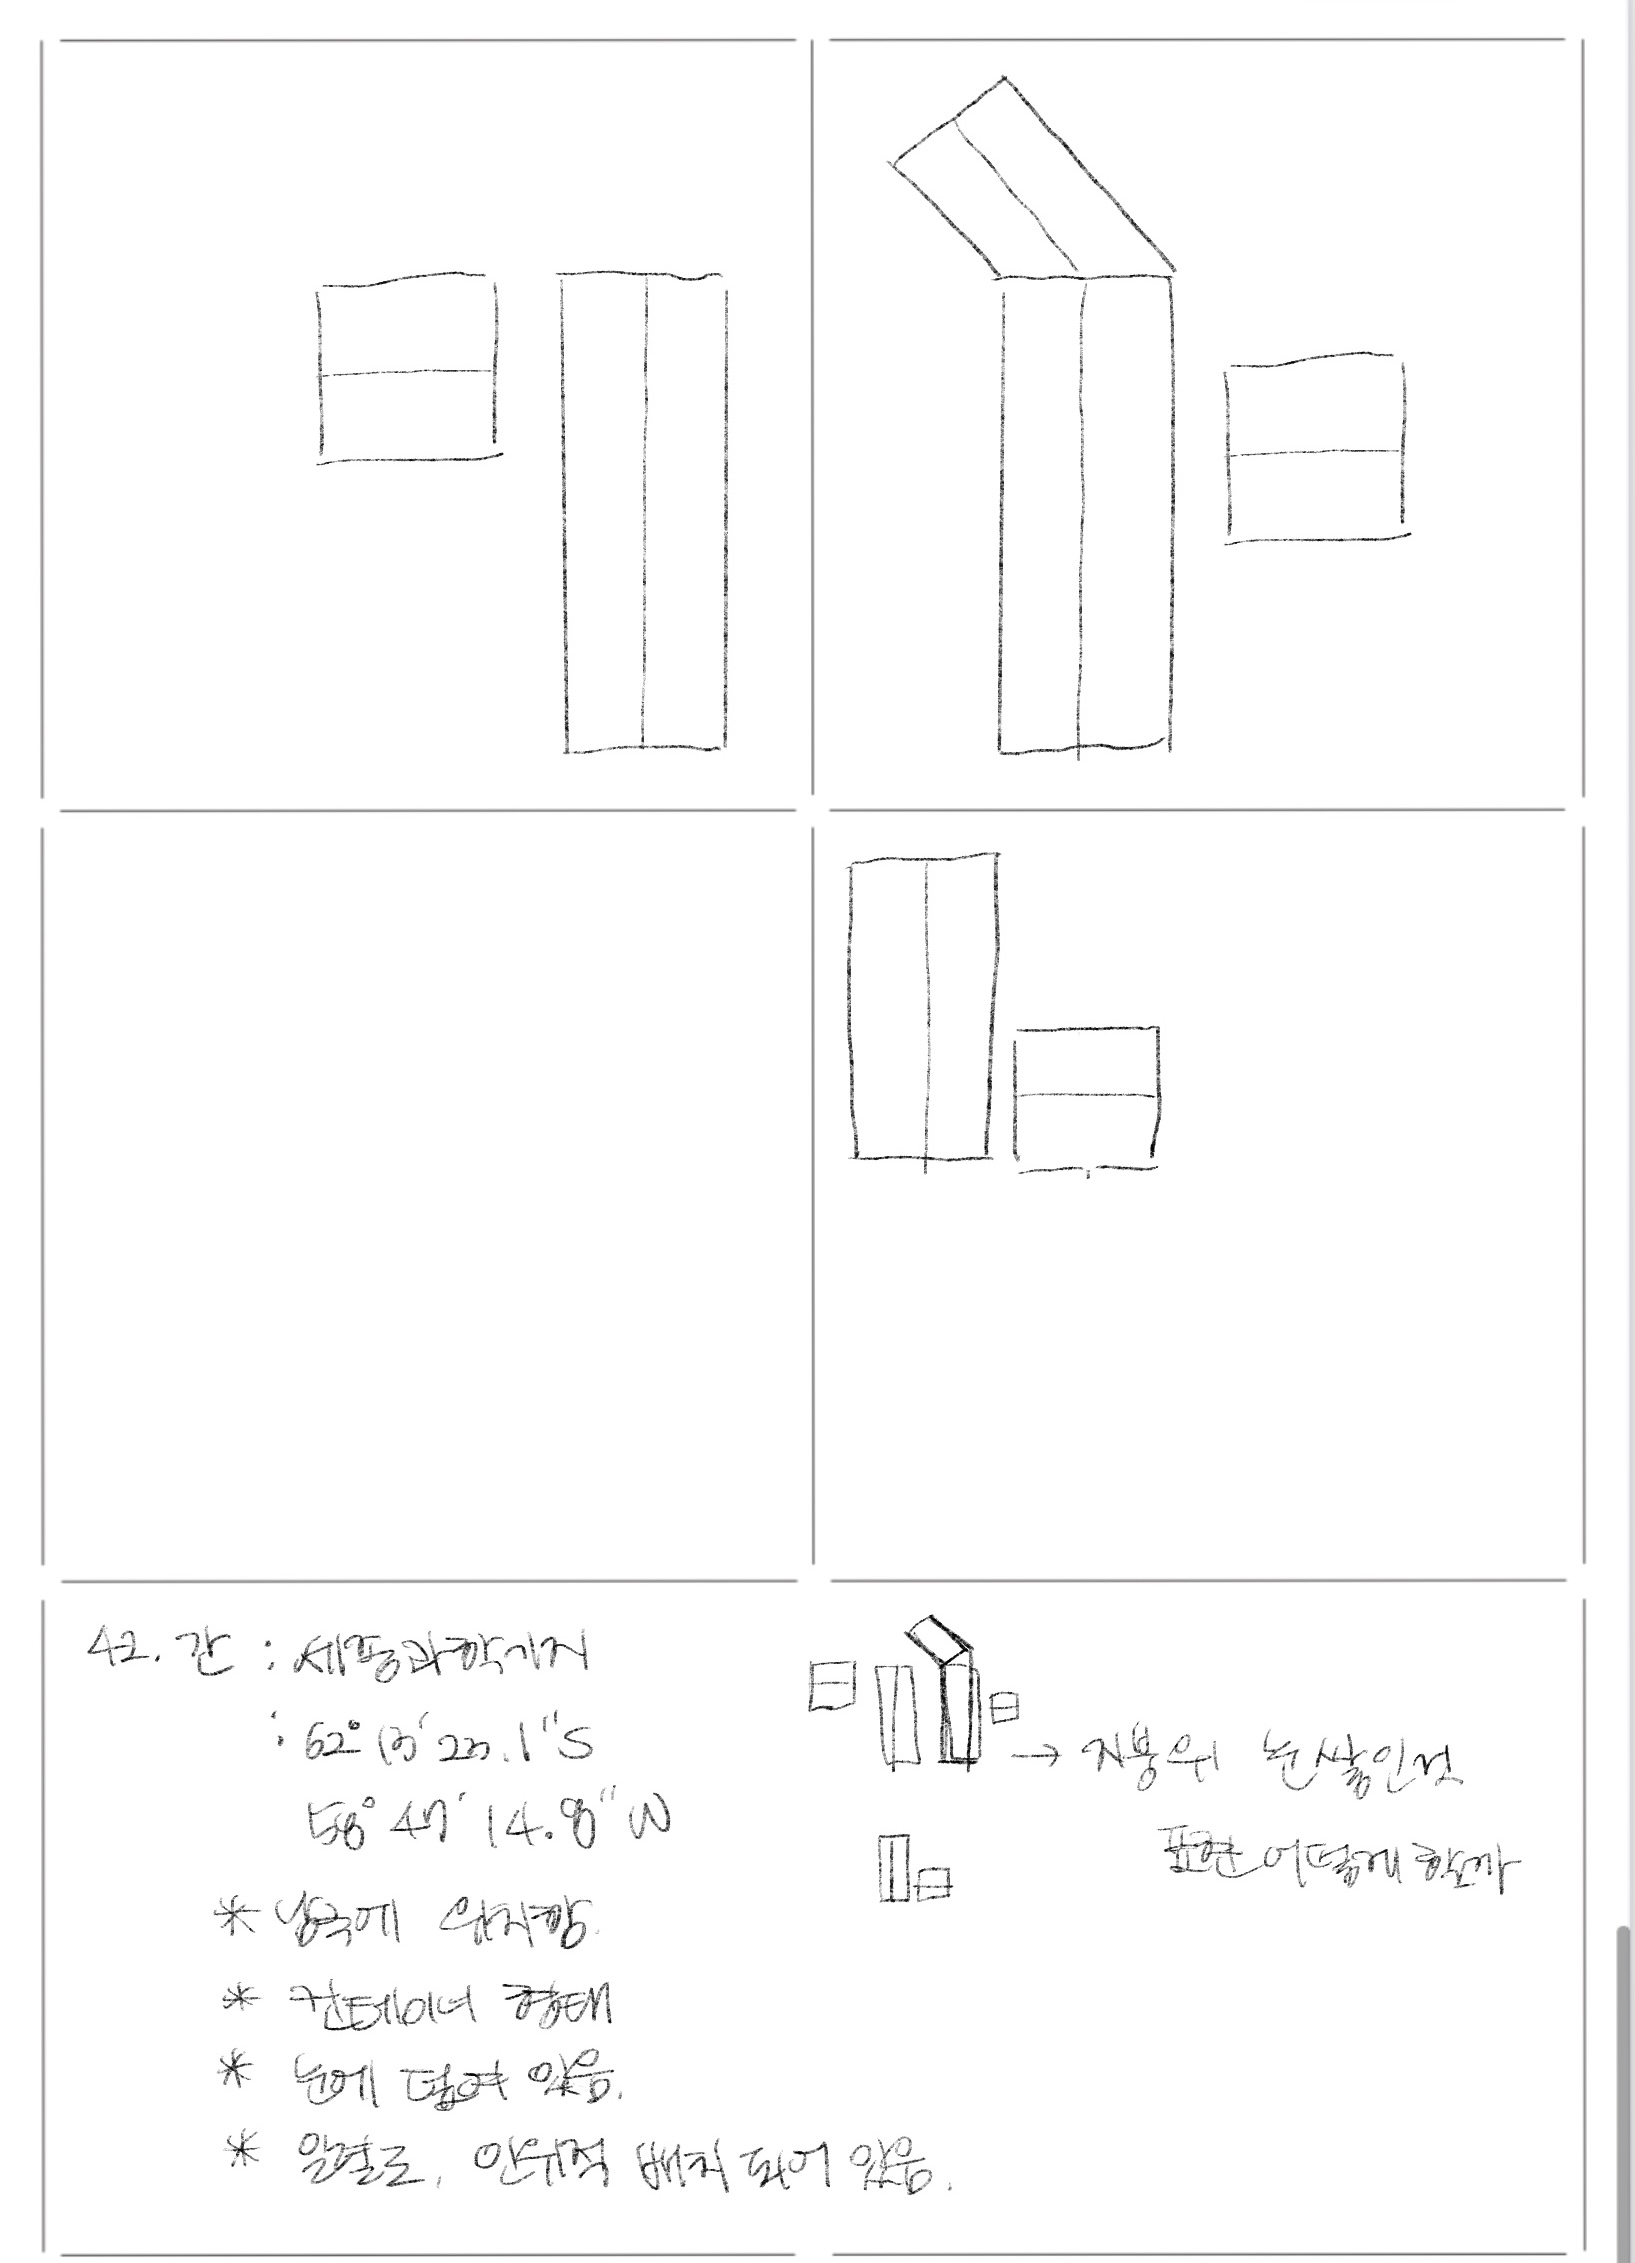 42. 간 : 세종과학기지
: 62° 13′ 23.1″S
58° 47′ 14.8″W
* 남극에 위치함.
* 컨테이너 형태
* 눈에 덮여 있음.
* 일렬로, 인위적 배치 되어 있음.
→ 지붕위 눈 쌓인것
표현 어떻게 할까